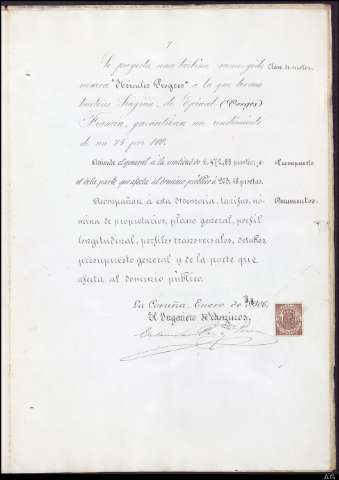 7
Se proyecta una turbina sumergida Clase de motor.
marca "Hércules Progres" a la que los cons-
tructores Singrün, de Epinal (Vosges)
Francia, garantizan un rendimiento
de un 75 por 100.
Asciende el general a la cantidad de 2.472,88 pesetas; y Presupuesto
el de la parte que afecta al dominio público a pesetas.
Acompañan a esta Memoria, tarifas, nó- Documentos.
mina de propietarios, plano general, perfil
longitudinal, perfiles transversales, detalles
presupuesto general y de la parte que
afecta al dominio público.
La Coruña, Enero de 1906.
El Ingeniero de Caminos,